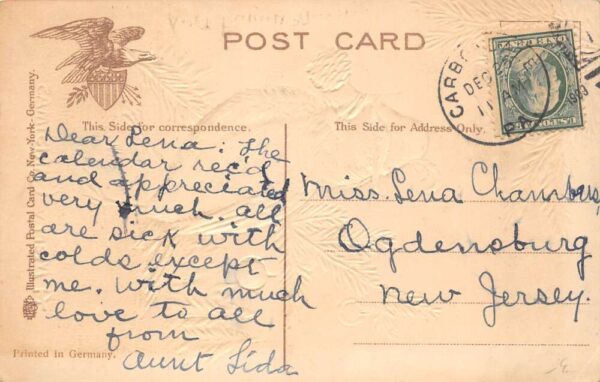 POST CARD
This Side for correspondence.
This Side for Address Only.
Dear Lena: The
calendar rec'd
and appreciated
very much. all
are sick with
colds except
me. with much
love to all
from
Aunt Lida
Miss. Lena Chambus,
Ogdensburg
New Jersey.
Illustrated Postal Card Co. New-York-Germany.
Printed in Germany.
CARBO
DEC
11 AM
1909
PA.